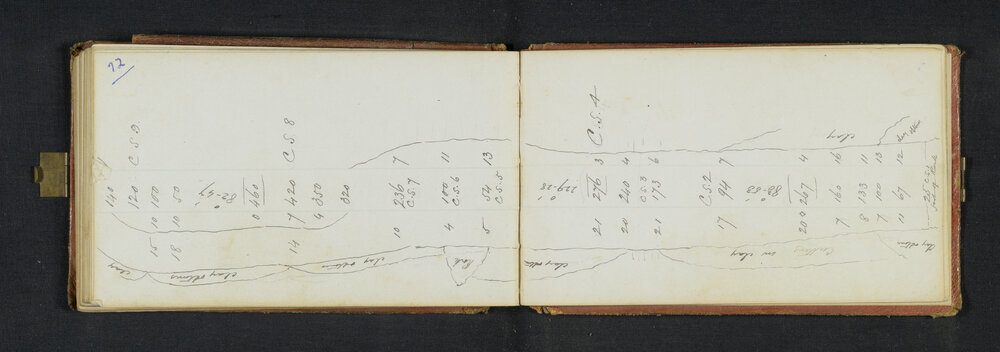 22
140
clay
120 C.S.9.
15 10 100
18 10 50
82-47
clay
0 460
14 7 420 C.S.8
4 350
320
clay
10 236 7
C.S.7
4 100 11
C.S.6
5 54 13
C.S.5
229-28
clay
21 276 3 C.S.4
20 240 4
C.S.3
21 173 6
C.S.2
17 94 7
in clay
20 0 267 4
7 160 16
clay
8 133 11
7 100 13
11 67 12
clay